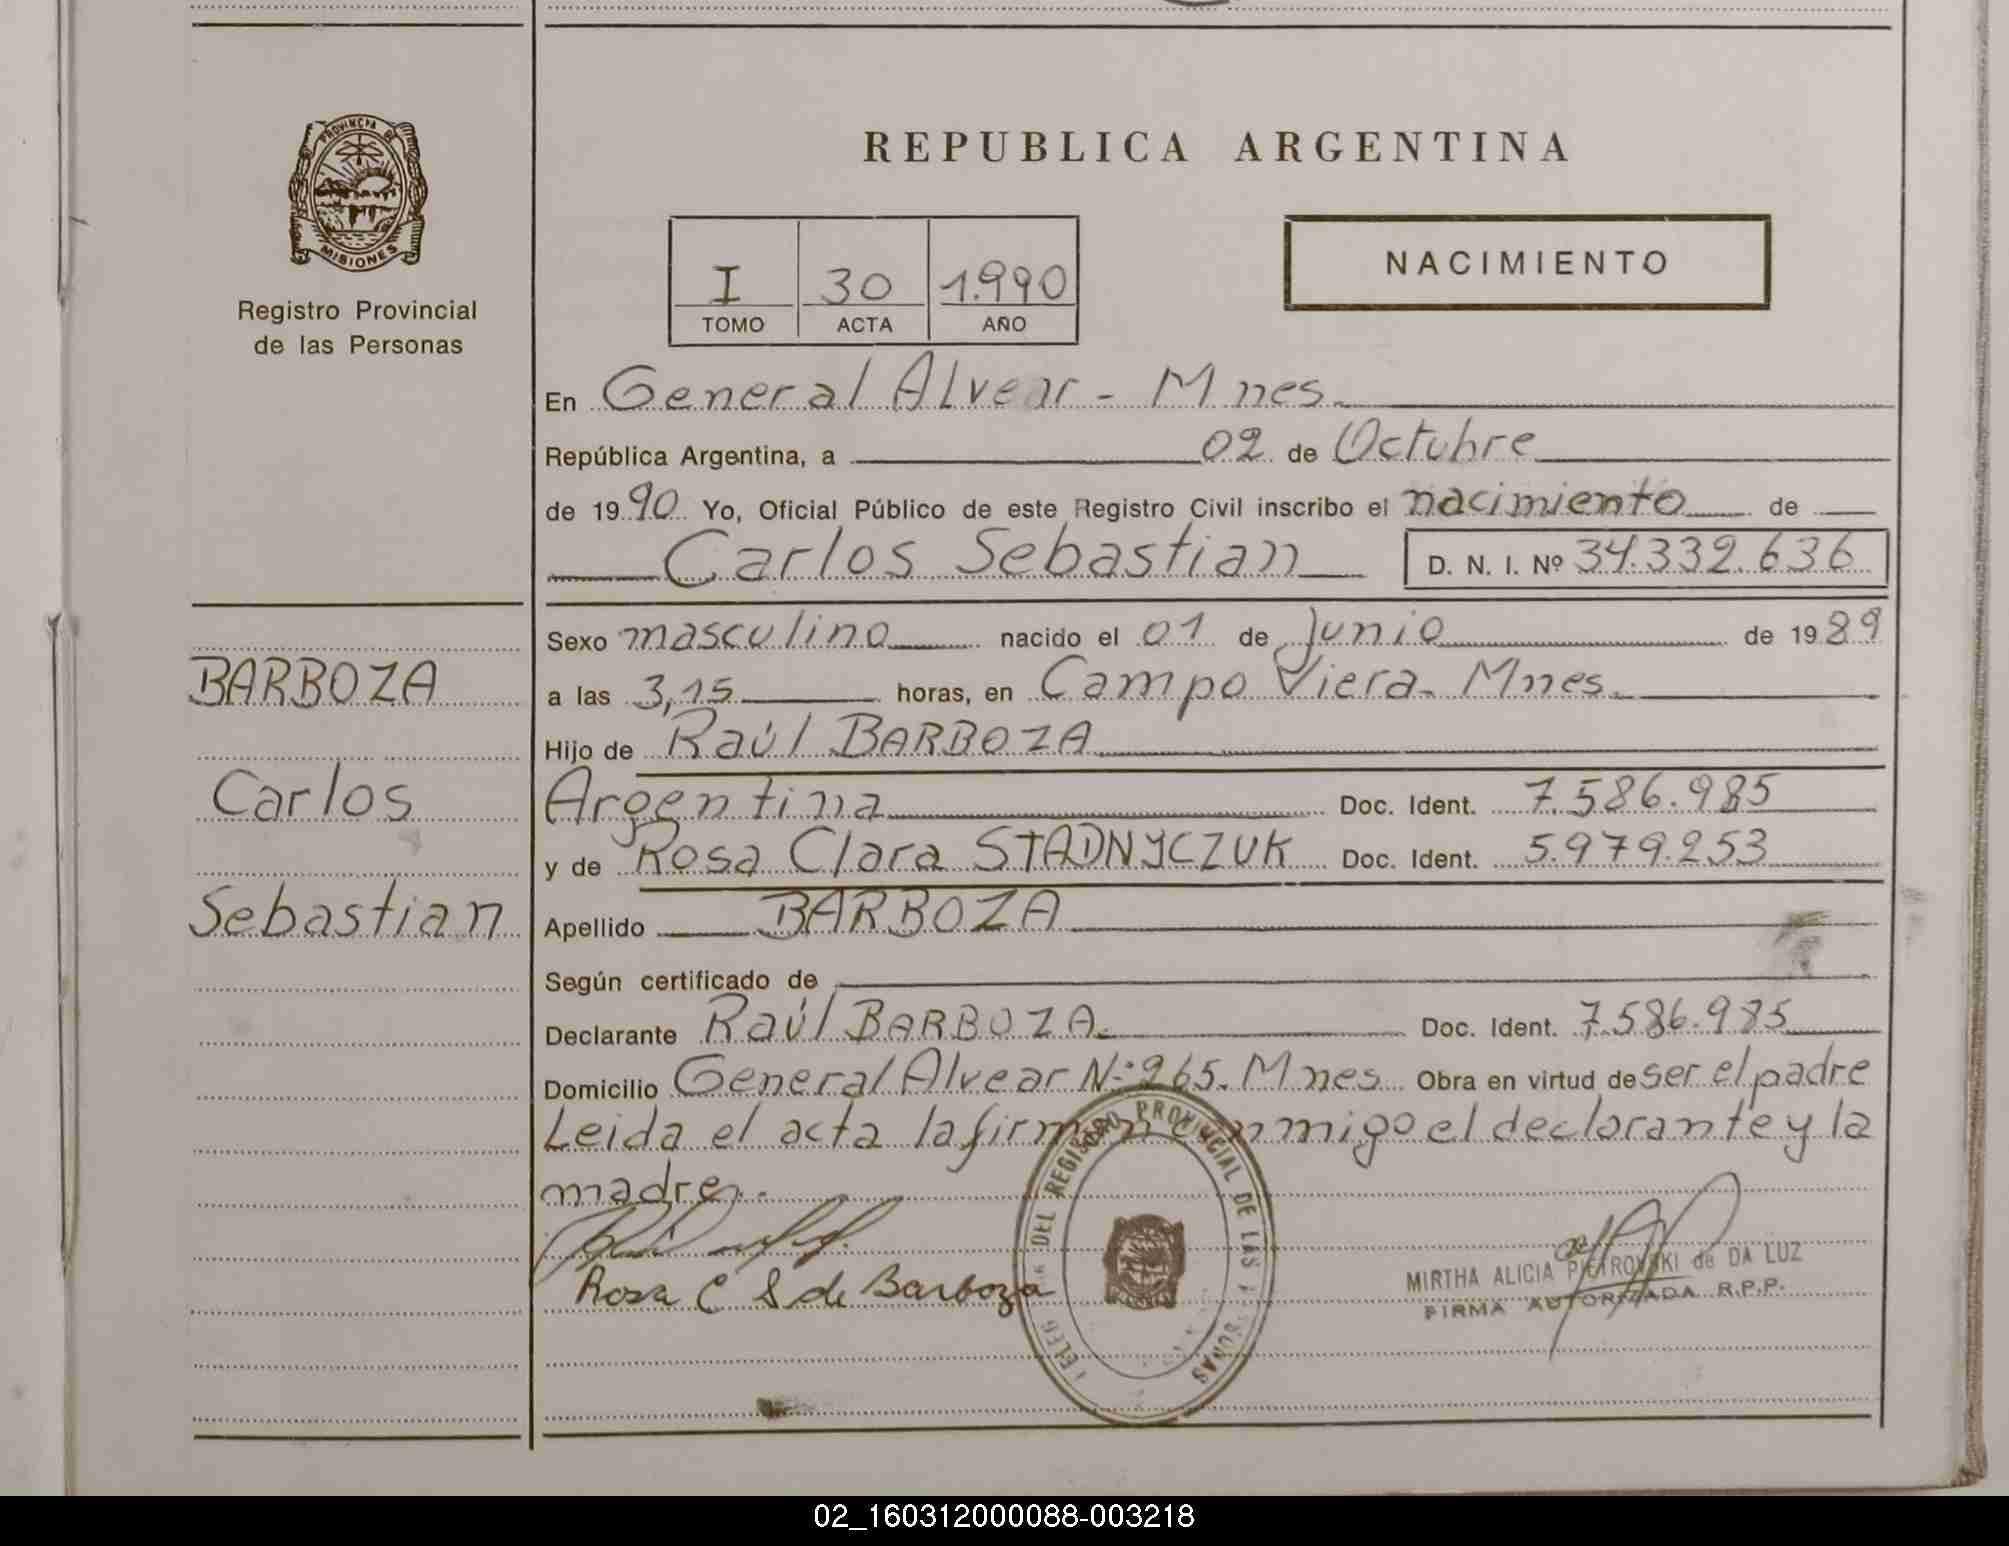 REPUBLICA ARGENTINA
PROVINCIA DE
MISIONES
Registro Provincial
de las Personas
I 30 1.990
TOMO ACTA AÑO
NACIMIENTO
En General Alvear - Mnes.
República Argentina, a 02 de Octubre
de 1990 Yo, Oficial Público de este Registro Civil inscribo el nacimiento de
Carlos Sebastian D. N. I. Nº 34.332.636
Sexo masculino nacido el 01 de Junio de 1989
BARBOZA
a las 3,15 horas, en Campo Viera. Mnes.
Hijo de Raúl BARBOZA
Carlos
Argentina Doc. Ident. 7.586.985
y de Rosa Clara STADNYCZUK Doc. Ident. 5.979.253
Sebastian
Apellido BARBOZA
Según certificado de
Declarante Raúl BARBOZA. Doc. Ident. 7.586.985
Domicilio General Alvear Nº 265. Mnes Obra en virtud de ser el padre
Leida el acta la firman conmigo el declarante y la
madre.
Rosa C S de Barboza
DEL REGISTRO PROVINCIAL DE LAS
MIRTHA ALICIA PIETROVSKI de DA LUZ
FIRMA AUTORIZADA R.P.P.
02_160312000088-003218